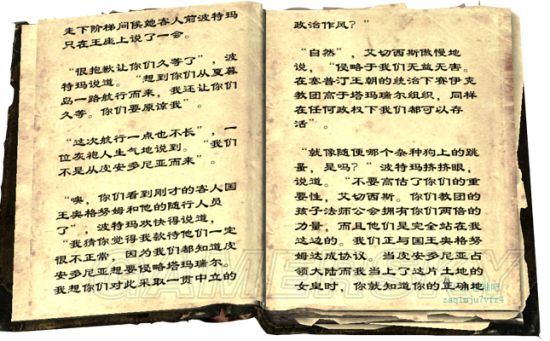 走下阶梯间侯她客人前波特玛
只在王座上说了一会。
“很抱歉让你们久等了”，波
特玛说道。“想到你们从夏暮
岛一路航行而来，我还让你们
久等。你们要原谅我”。
“这次航行一点也不长”，一
位灰袍人生气地说到。“我们
不是从皮安多尼亚而来”。
“噢，你们看到刚才的客人国
王奥格努姆和他的随行人员
了”，波特玛欢快得说道，
“我猜你觉得我款待他们一定
很不正常，因为我们都知道皮
安多尼亚想要侵略塔玛瑞尔。
我想你们对此采取一贯中立的
政治作风？”
“自然”，艾切西斯傲慢地
说，“侵略于我们无益无害。
在塞普汀王朝的统治下赛伊克
教团高于塔玛瑞尔组织，同样
在任何政权下我们都可以存
活”。
“就像随便哪个杂种狗上的跳
蚤，是吗？”波特玛挤挤眼，
说道。“不要高估了你们的重
要性，艾切西斯。你们教团的
孩子法师公会拥有你们两倍的
力量，而且他们是完全站在我
这边的。我们正与国王奥格努
姆达成协议，当皮安多尼亚占
领大陆而我当上了这片土地的
女皇时，你就知道你的正确地
GAMERSKY
zaq1mju7vfr4